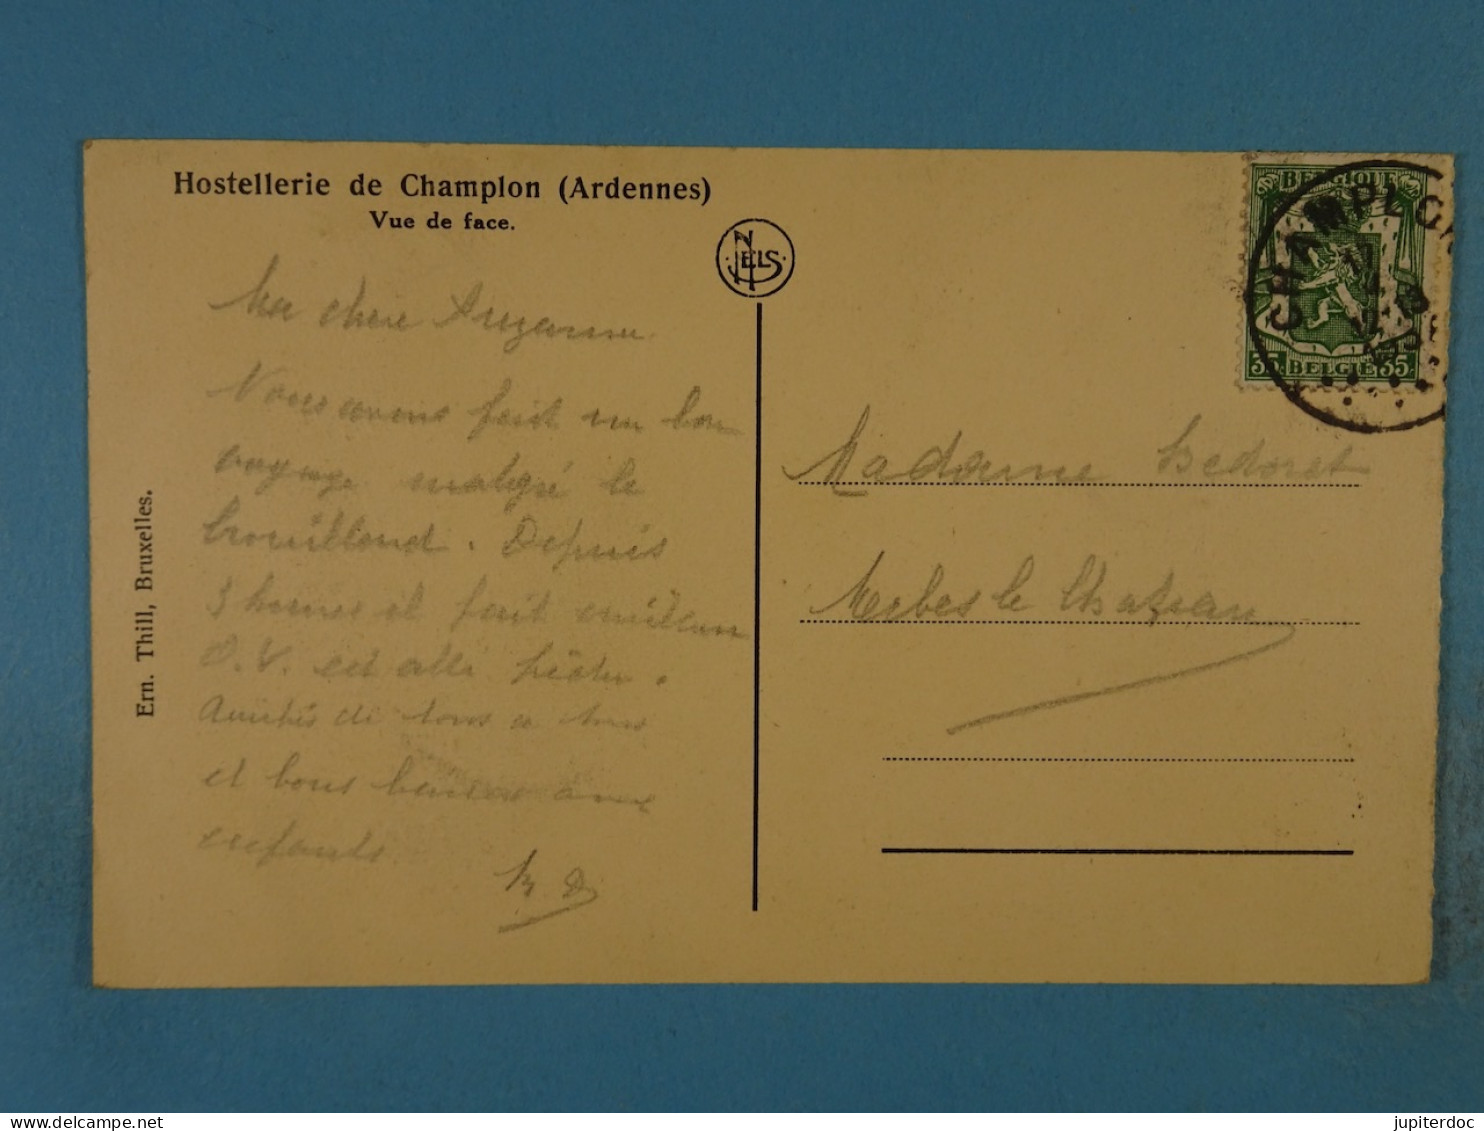 Hostellerie de Champlon (Ardennes)
Vue de face.
NELS
Ern. Thill, Bruxelles.
BELGIQUE
35 BELGIE 35
CHAMPLON
Ma chère Suzanne
Nous avons fait un bon
voyage malgré le
brouillard. Depuis
3 heures il fait
O.V. est allé pêcher.
Amitiés de tous à tous
et bons baisers aux
enfants.
Madame Ledoret
Merbes le Chateau